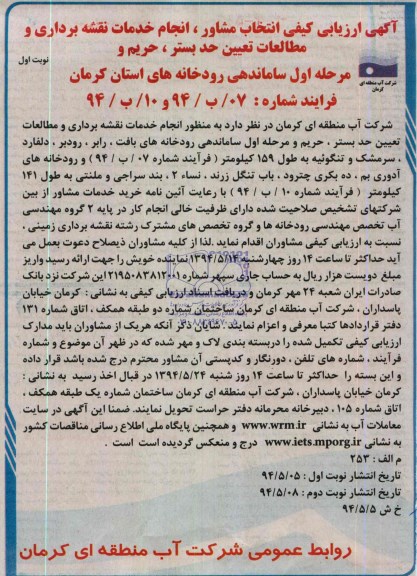 آگهی ارزیابی کیفی انتخاب مشاور ، انجام خدمات نقشه برداری و
مطالعات تعیین حد بستر ، حریم و
نوبت اول
مرحله اول ساماندهی رودخانه های استان کرمان
شرکت آب منطقه ای
کرمان
فرایند شماره : ۰۷/ ب / ۹۴ و ۱۰/ ب / ۹۴
شرکت آب منطقه ای کرمان در نظر دارد به منظور انجام خدمات نقشه برداری و مطالعات
تعیین حد بستر ، حریم و مرحله اول ساماندهی رودخانه های بافت ، رابر ، رودبر ، دلفارد
، سرمشک و تنگوئیه به طول ۱۵۹ کیلومتر ( فرآیند شماره ۰۷ / ب / ۹۴ ) و رودخانه های
آدوری بم ، ده بکری چترود ، باب تنگل زرند ، نساء ۲ ، بند سراجی و ملنتی به طول ۱۴۱
کیلومتر ( فرآیند شماره ۱۰ / ب / ۹۴ ) با رعایت آئین نامه خرید خدمات مشاور از بین
شرکتهای تشخیص صلاحیت شده دارای ظرفیت خالی انجام کار در پایه ۲ گروه مهندسی
آب تخصص مهندسی رودخانه ها و گروه تخصص های مشترک رشته نقشه برداری زمینی ،
نسبت به ارزیابی کیفی مشاوران اقدام نماید .لذا از کلیه مشاوران ذیصلاح دعوت بعمل می
آید حداکثر تا ساعت ۱۴ روز چهارشنبه ۱۳۹۴/۵/۱۴ نماینده خویش را جهت ارائه رسید واریز
مبلغ دویست هزار ریال به حساب جاری سپهر شماره ۰۲۱۹۵۰۸۳۸۱۲۰۰۱ این شرکت نزد بانک
صادرات ایران شعبه ۲۴ مهر کرمان و دریافت اسناد ارزیابی کیفی به نشانی : کرمان خیابان
پاسداران ، شرکت آب منطقه ای کرمان ساختمان شماره دو طبقه همکف ، اتاق شماره ۱۳۱
دفتر قراردادها کتبا معرفی و اعزام نمایند . شایان ذکر آنکه هریک از مشاوران باید مدارک
ارزیابی کیفی تکمیل شده را دربسته بندی لاک و مهر شده که در ظهر آن موضوع و شماره
فرآیند ، شماره های تلفن ، دورنگار و کدپستی آن مشاور محترم درج شده باشد قرار داده
و این بسته را حداکثر تا ساعت ۱۴ روز شنبه ۱۳۹۴/۵/۲۴ در قبال اخذ رسید به نشانی :
کرمان خیابان پاسداران ، شرکت آب منطقه ای کرمان ساختمان شماره یک طبقه همکف ،
اتاق شماره ۱۰۵ ، دبیرخانه محرمانه دفتر حراست تحویل نمایند. ضمنا این آگهی در سایت
معاملات آب به نشانی www.wrm.ir و همچنین پایگاه ملی اطلاع رسانی مناقصات کشور
به نشانی www.iets.mporg.ir درج و منعکس گردیده است است .
م الف : ۲۵۳
تاریخ انتشار نوبت اول : ۹۴/۵/۰۵
تاریخ انتشار نوبت دوم : ۹۴/۵/۰۸
خ ش ۹۴/۵/۵
روابط عمومی شرکت آب منطقه ای کرمان